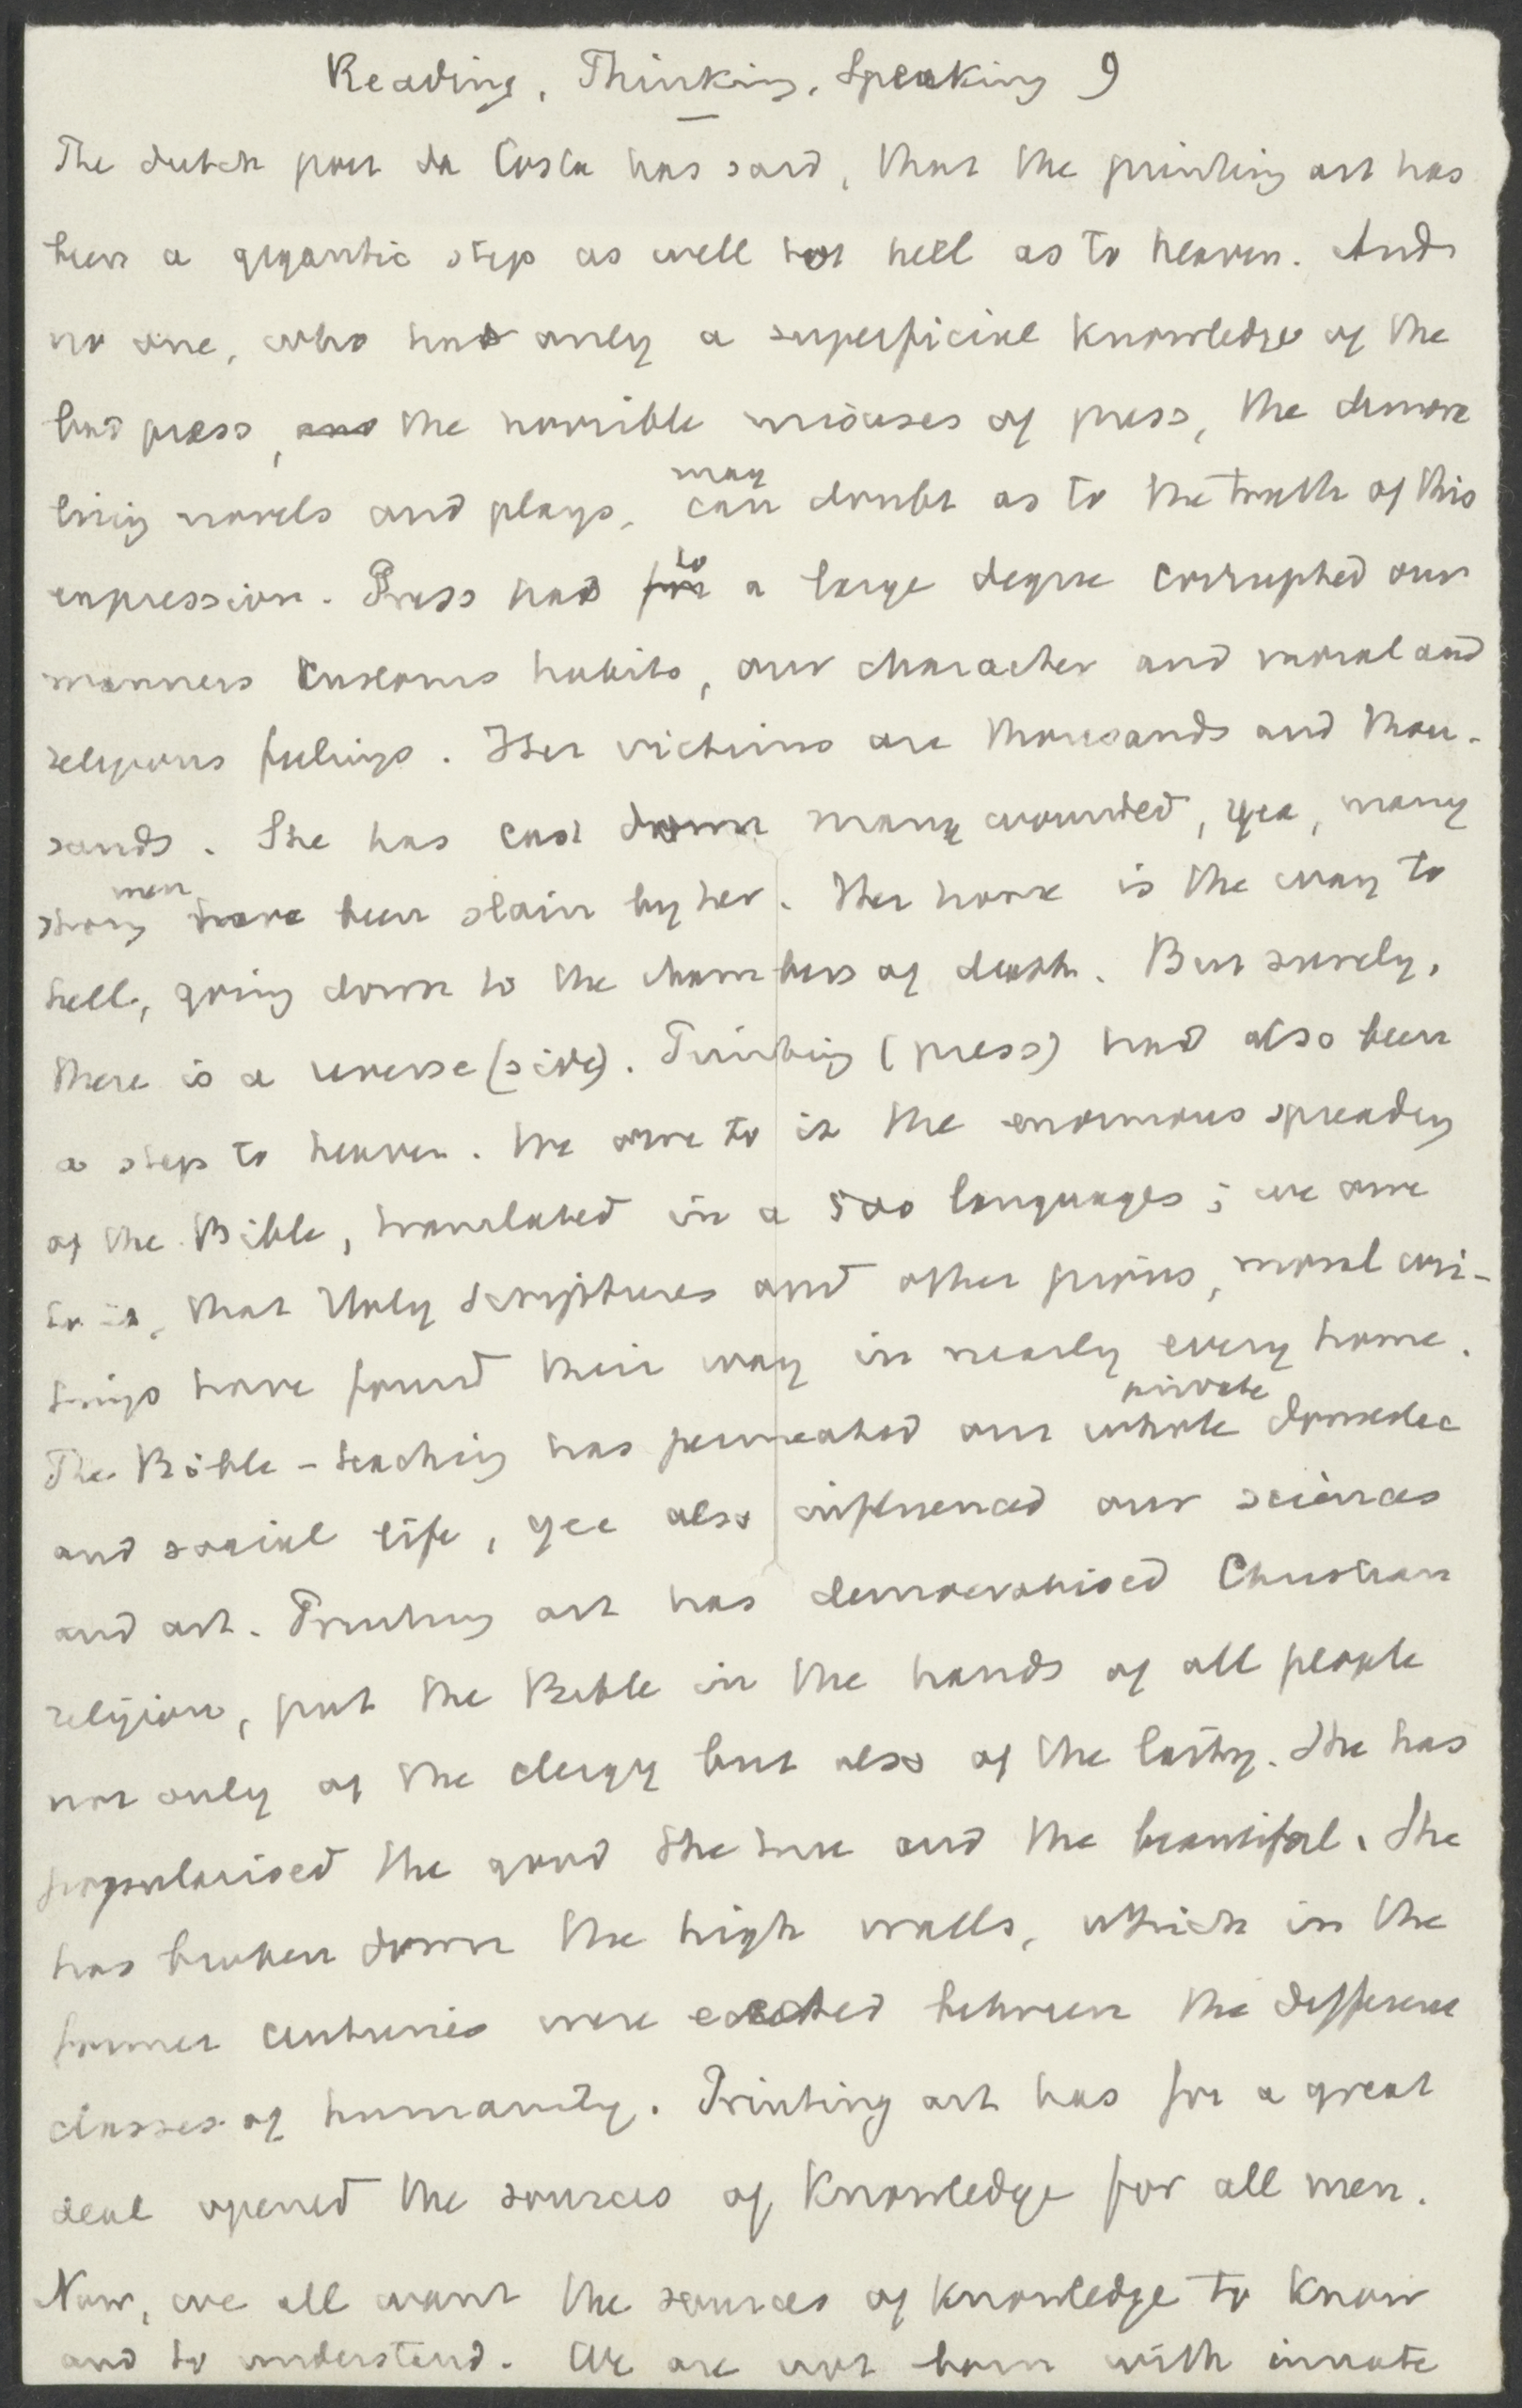 Reading, Thinking, Speaking 9
The dutch poet da Costa has said, that the printing art has
been a gigantic step as well to hell as to heaven. And
no one, who had only a superficial knowledge of the
bad press, and the horrible misuses of press, the demora
lising novels and plays, may can doubt as to the truth of this
expression. Press had for to a large degree corrupted our
manners customs habits, our character and moral and
religious feelings. Her victims are thousands and thou-
sands. She has cast down many wounded, yea, many
strong men have been slain by her. Her house is the way to
hell, going down to the chambers of death. But surely,
there is a reverse (side). Printing (press) had also been
a step to heaven. We owe to it the enormous spreading
of the Bible, translated in a 500 languages; we owe
to it, that Holy Scriptures and other pious, moral wri-
tings have found their way in nearly every home.
The Bible-teaching has permeated our whole private domestic
and social life, yea also influenced our sciences
and art. Printing art has democratised Christian
religion, put the Bible in the hands of all people
not only of the clergy but also of the laity. She has
popularised the good the true and the beautiful. She
has broken down the high walls, which in the
former centuries were erected between the different
classes of humanity. Printing art has for a great
deal opened the sources of knowledge for all men.
Now, we all want the sources of knowledge to know
and to understand. We are not born with innate